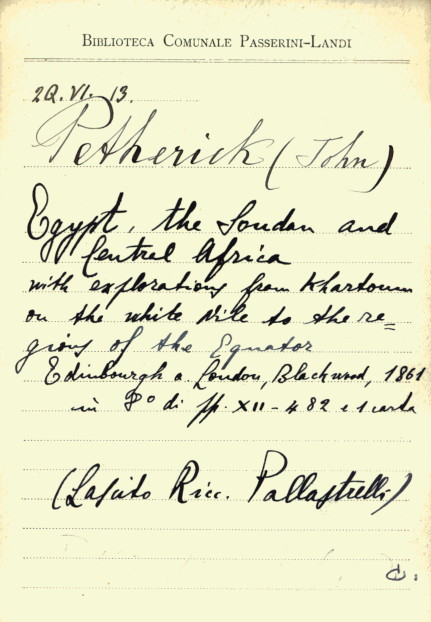 BIBLIOTECA COMUNALE PASSERINI-LANDI
2Q.VI.13.
Petherick (John)
Egypt, the Soudan and
Central Africa
with explorations from Khartoum
on the white Nile to the re=
gions of the Equator
Edinbourgh a London, Blackwood, 1861
in 8° di pp. XII-482 e 1 carta
(Lascito Ricc. Pallastrelli)